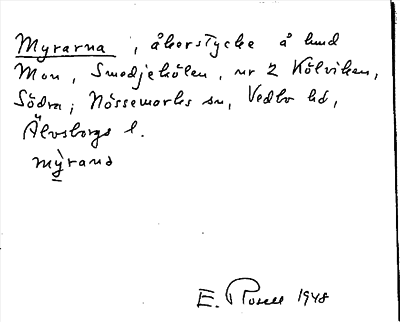 Myrarna, åkerstycke å lund
Mon, Smedjekölen, nr 2 Kölviken,
Södra; Nössemarks sn, Vedbo hd,
Älvsborgs l.
mỳrana
E. Rosell 1948